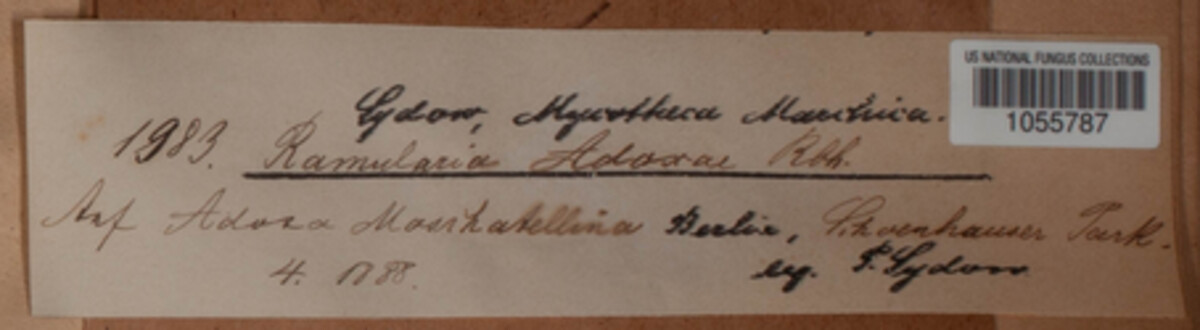 Sydow, Mycotheca Marchica.
US NATIONAL FUNGUS COLLECTIONS
1055787
1983. Ramularia Adoxae Rbh.
Auf Adoxa Moschatellina Berlin, Schoenhauser Park.
4. 1888. leg. P. Sydow